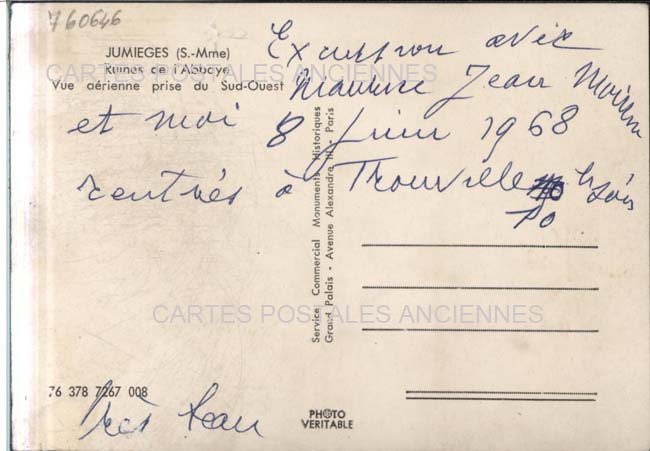 760646
JUMIEGES (S.-Mme)
Ruines de l'Abbaye
Vue aérienne prise du Sud-Ouest
Excursion avec
Maurice Jean
et moi 8 Juin 1968
rentrés à Trouville le soir
10
CARTES POSTALES ANCIENNES
Service Commercial Monuments Historiques
Grand Palais - Avenue Alexandre III - Paris
CARTES POSTALES ANCIENNES
76 378 7267 008
très beau
PHOTO
VERITABLE